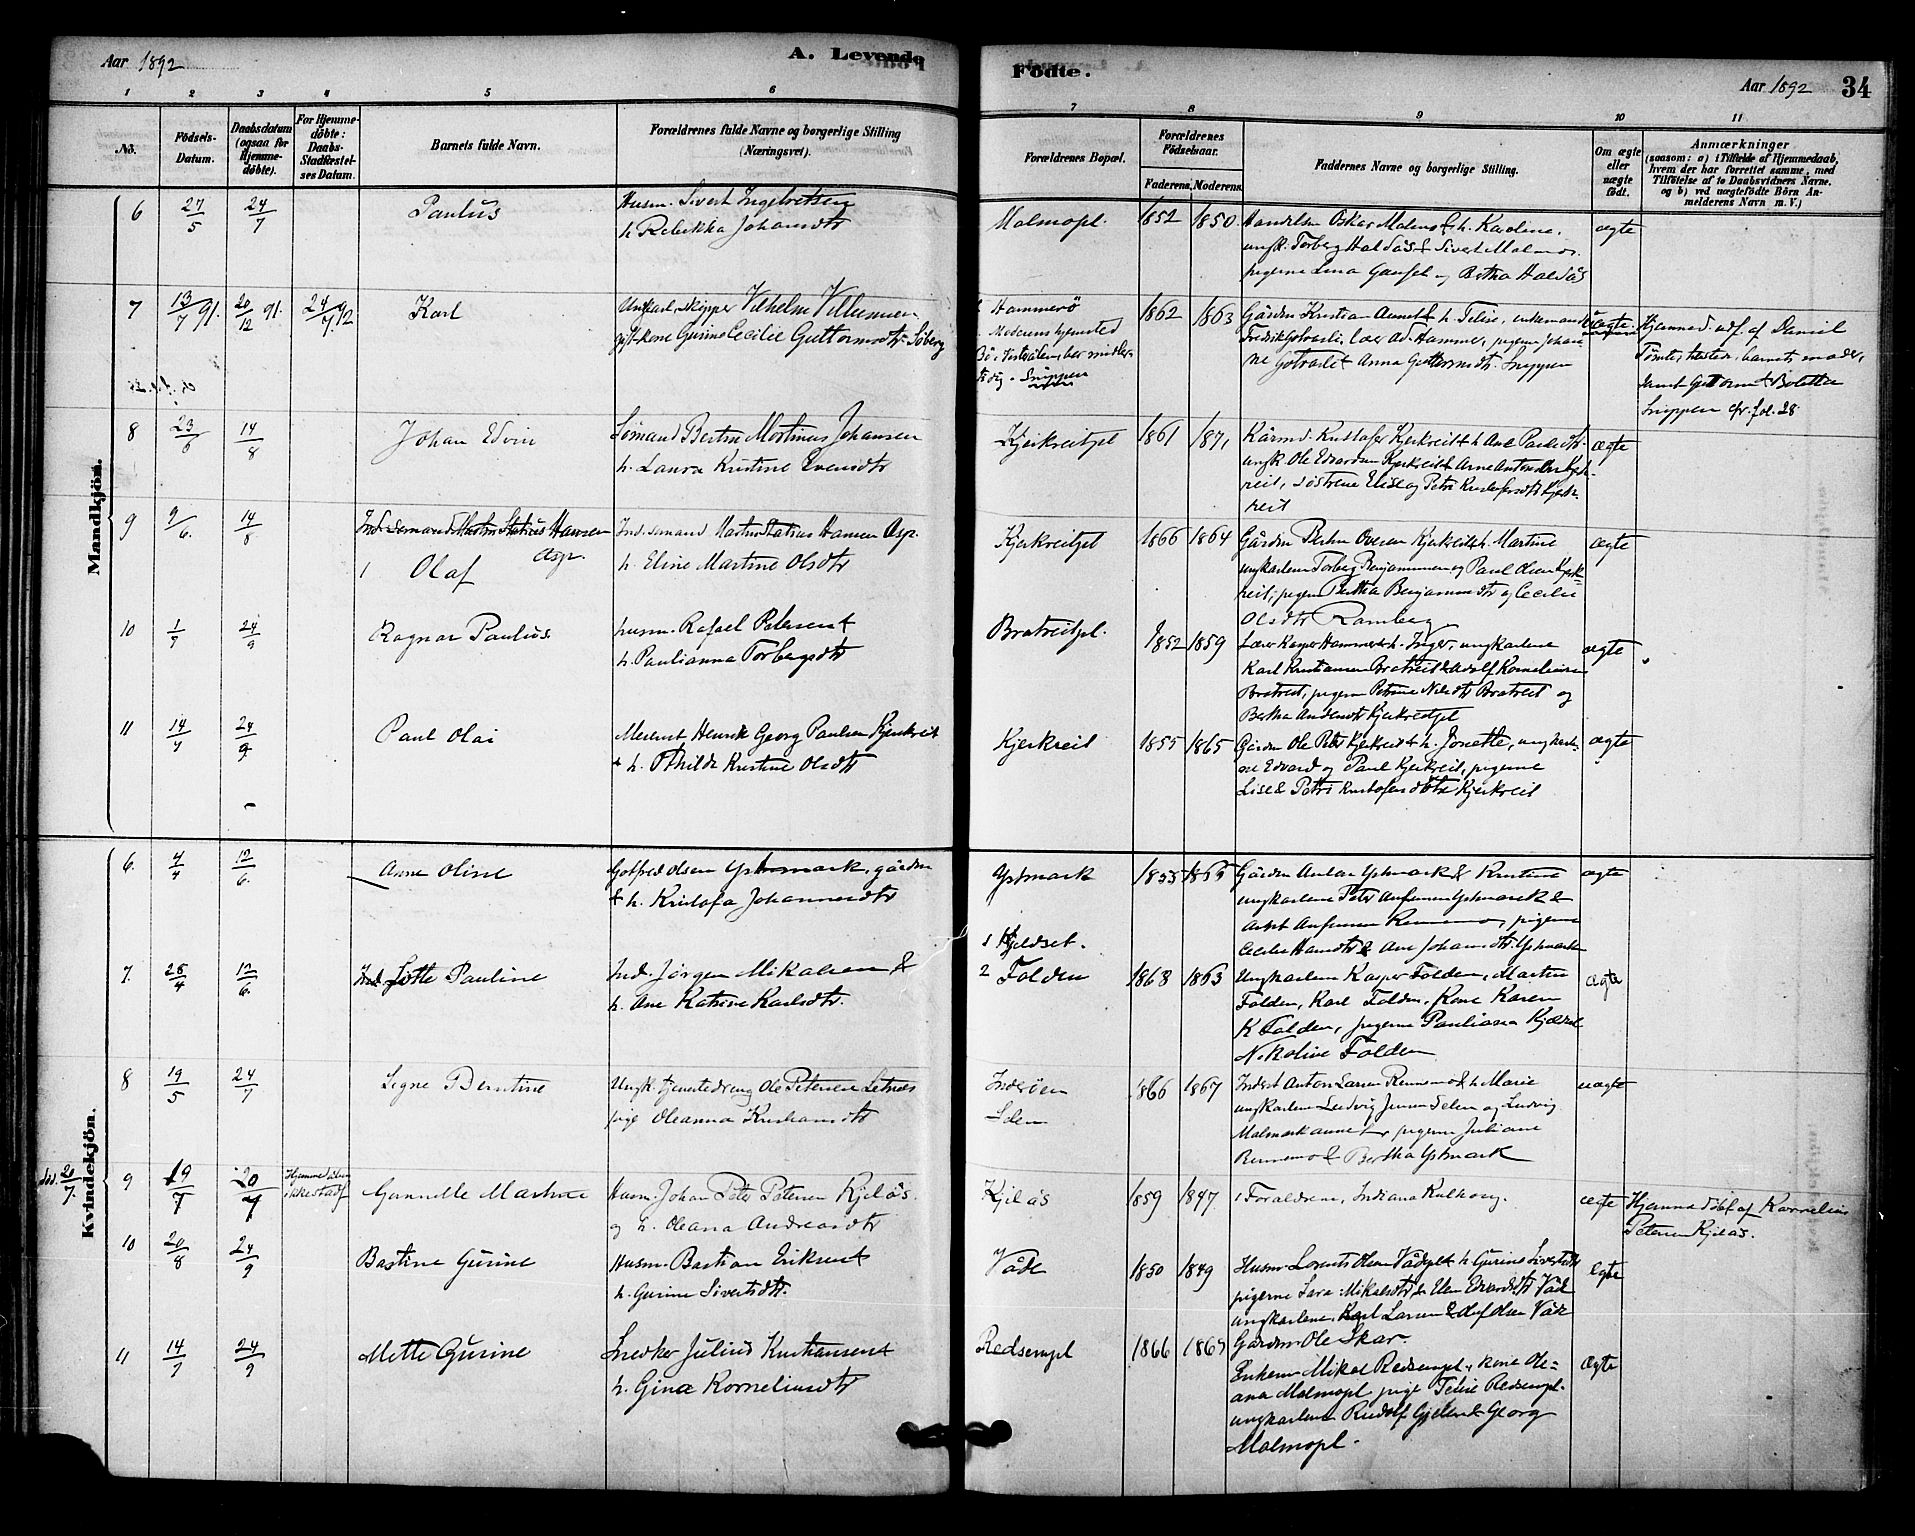 Aar 1892
A. Levende
Födte.
Aar 1892
34
1 2 3 4 5 6 7 8 9 10 11
No.
Födsels-
Datum.
Daabsdatum
(ogsaa for
Hjemme-
döbte).
For Hjemme-
döbte:
Daabs-
Stadfæstel-
ses Datum.
Barnets fulde Navn.
Forældrenes fulde Navne og borgerlige Stilling
(Næringsvei).
Forældrenes Bopæl.
Forældrenes
Födselsaar.
Faderens. Moderens.
Faddernes Navne og borgerlige Stilling.
Om ægte
eller
uægte
födt.
Anmærkninger
(saasom: a) i Tilfælde af Hjemmedaab,
hvem der har forrettet samme, med
Tilföielse af to Daabsvidners Navne,
og b) ved uægtefödte Börn An-
melderens Navn m. V.)
Mandkjön.
6 27/5 24/7 Paulus
Husm. Sivert Ingebretsen
h. Rebekka Johansdtr
Malmopl. 1852 1850.
Handelsm Oskar Malmo & h. Karoline,
ungk. Torberg Haldås & Sivert Malmo
pigerne Lina Gausel og Bertha Haldås
ægte
7 13/7 91. 20/12 91. 24/7 92 Karl
Ungkarl, skipper Vilhelm Villumsen
gift kone Gurine Cecilie Guttormsdtr Söberg
Hammerö
Moderens hjemsted
Snippen
1862 1863
Gårdm Kristian Aunet & h. Telise, enkemand
Fredrik Gotvasli, lær Ad. Hammer, pigerne
Anna Guttormsdtr. Snippen
uægte
Hjemmed. udf. af Daniel
Tömte, tilstede, barnets moder,
samt Guttorm & Boletta
Snippen cfr. fol. 28
8 23/6 14/8 Johan Edvin
Sömand Bertin Martinus Johansen
h. Laura Kristine Evensdtr
Kjerkreitpl 1861 1871
ungk Ole Edvardsen Kjerkreit
reit, söstrene Elise og Petra Kristofersdtr Kjerk
reit
ægte
9 9/6. 14/8 Ind. sömand Martin Statius Hansen
Asp.
1 Olaf
Ind. sömand Martin Statius Hansen Asp.
h. Eline Martine Olsdtr
Kjerkreitpl 1866 1864
Gårdm Kjerkreit & h. Martine
ungkarlene Torberg Benjaminsen og Paul Olsen Kjerk-
reit, pigerne Bertha Benjaminsdtr og Cecilie
Olsdtr Ramberg
ægte
10 1/7 24/9 Ragnar Paulus.
husm. Rafael Petersen &
h. Paulianna Torbergsdtr
Bratreitpl. 1852 1859
Lærer Kasper Hammer & h. Inger, ungkarlene
Karl Kristiansen Bratreit & Adolf Kornelius
Bratreit, pigerne Petrine Nilsdtr Bratreit og
Bertha Andersdtr Kjerkreitpl
ægte
11 14/7 24/9 Paul Olai
Henrik Georg Paulsen Kjerkreit
& h. Othilde Kristine Olsdtr
Kjerkreit 1855 1865
Gårdm Ole Peter Kjerkreit & h. Jonette, ungkarle-
ne Edvard og Paul Kjerkreit, pigerne
Lise & Petra Kristofersdtr Kjerkreit
ægte
Kvindekjön.
6. 4/4 12/6. Anne Oline
Gotfred Olsen Ystmark, gårdm
& h. Kristofa Johannesdtr
Ystmark 1855 1865
Gårdm Ystmark & Kristine
ungkarlene Peter Ystmark &
pigerne
Cecilie Hansdtr & Ane Johansdtr Ystmark
ægte
7. 25/4 12/6. Lotte Pauline
Ind. Jörgen Mikalsen &
h. Ane Katrine Karlsdtr.
1 Kjeldset.
2 Folden 1868 1863
Ungkarlene Kasper Folden, Martin
Folden, Karl Folden, Kone Karen
K Folden, pigerne Pauliana Kjeldset
Nikoline Folden
ægte
8 19/5 24/7 Signe Berntine
Ungk. tjenestedreng Ole Petersen Letnes
pige Oleanna Kristiansdtr
Inderöen
1866 1867
Inderst Anton Larsen Rennemo & h. Marie
ungkarlene Ludvig Jensen og Ludvig
pigerne Juliane
Rennemo & Bertha Ystmark
uægte
död. 20/7. 9 19/7 20/7 Hjemmedöbt
ikke stadf. Gunnelle Martine
Husm. Johan Peter Petersen Kjelås.
og h. Oleana Andreasdtr
Kjelås 1859 1847
Forældrene, Indiana Kulhaug.
ægte
Hjemmedöbt af Kornelius
Petersen Kjelås.
10 20/8 24/9 Bastine Gurine
Husm. Bastian Eriksen &
h. Gurine Sivertsdtr.
Våde 1850 1849
Husm Lorents Olsen Vådepl & h Gurine Sivertsdtr
pigerne Sara Mikalsdtr & Elen Edvardsdtr Våde
ungkarlene Karl Larsen & Oluf Olsen Våde
ægte
11 14/7 24/9 Mette Gurine
Snedker Julius Kristiansen &
h. Gina Korneliusdtr
Redsempl 1866 1865
Gårdm. Ole Skar.
Enkem Mikal Redsempl, kone Ole-
ana Malmopl, pige Telise Redsempl.
ungkarlene Rudolf & Georg
Malmopl.
ægte